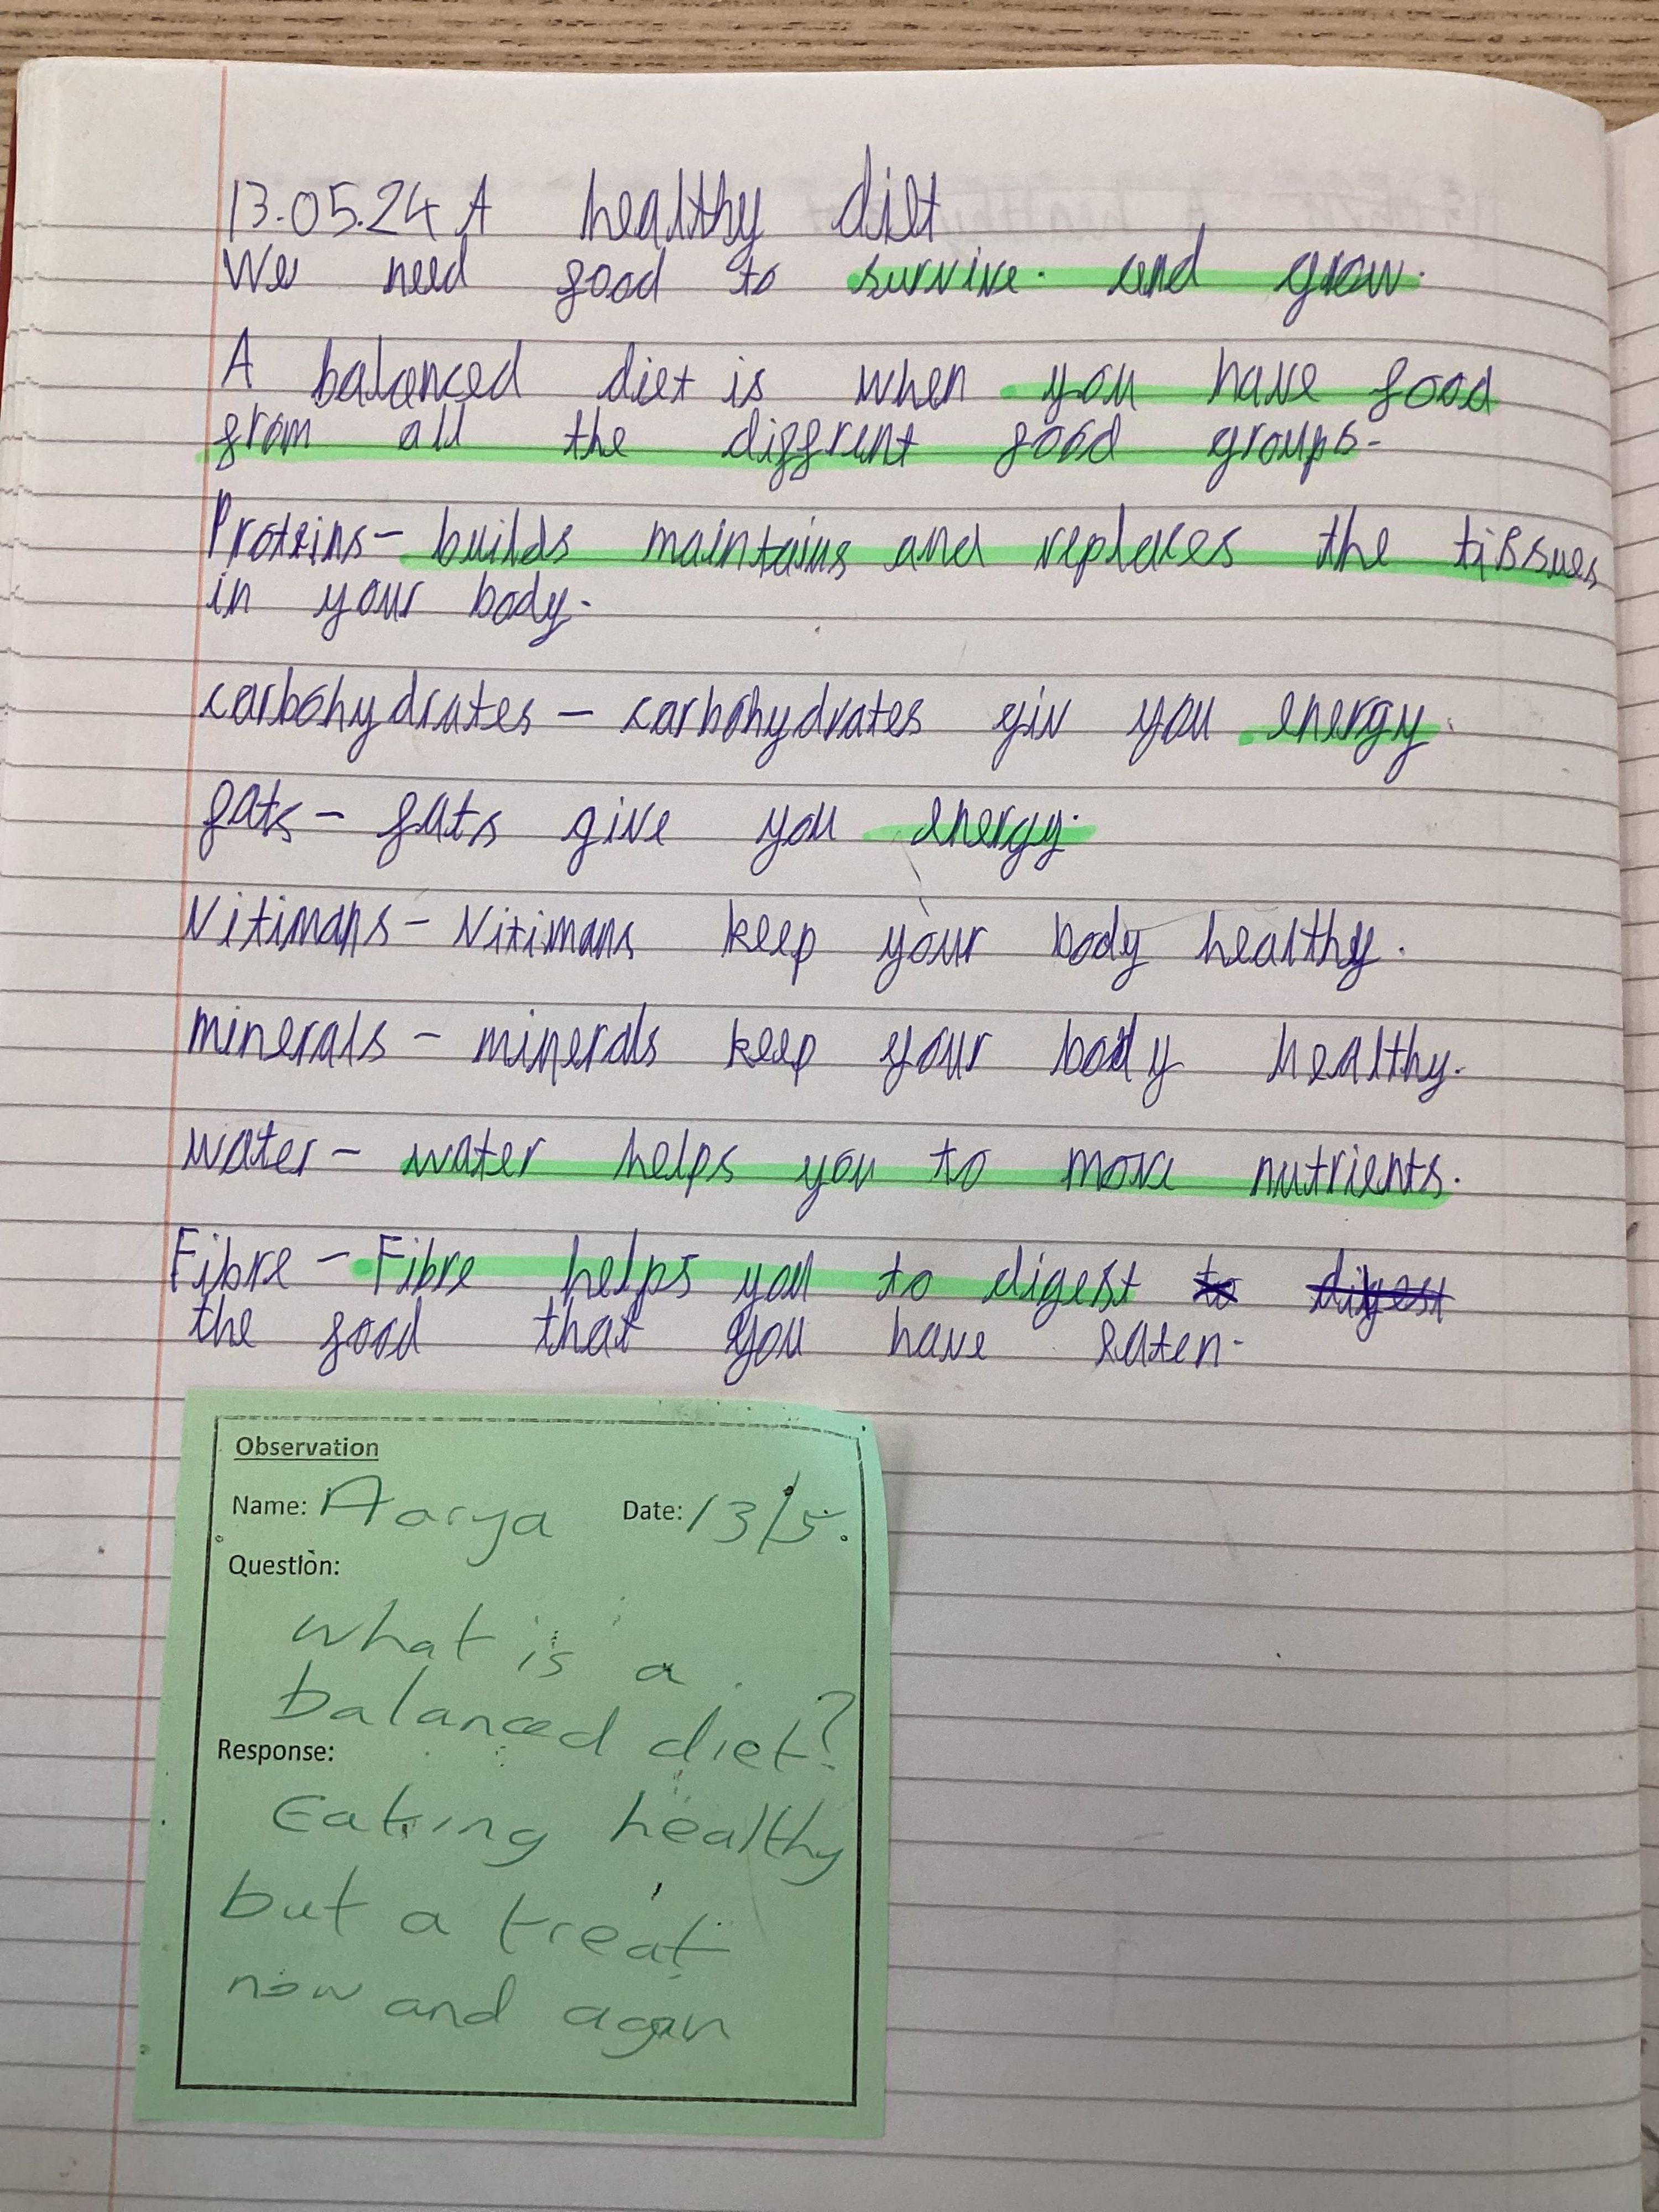 13.05.24 A healthy diet
We need food to survive. and grow.
A balanced diet is when you have food
from all the diffrent food groups.
Proteins - builds maintains and replaces the tissues
in your body.
carbohydrates - carbohydrates giv you energy.
fats - fats give you energy.
Vitimans - Vitimans keep your body healthy.
minerals - minerals keep your body healthy.
water - water helps you to move nutrients.
Fibre - Fibre helps you to digest to digest
the food that you have eaten.
Observation
Name: Aarya Date: 13/5.
Question:
what is a
balanced diet?
Response:
Eating healthy
but a treat
now and again